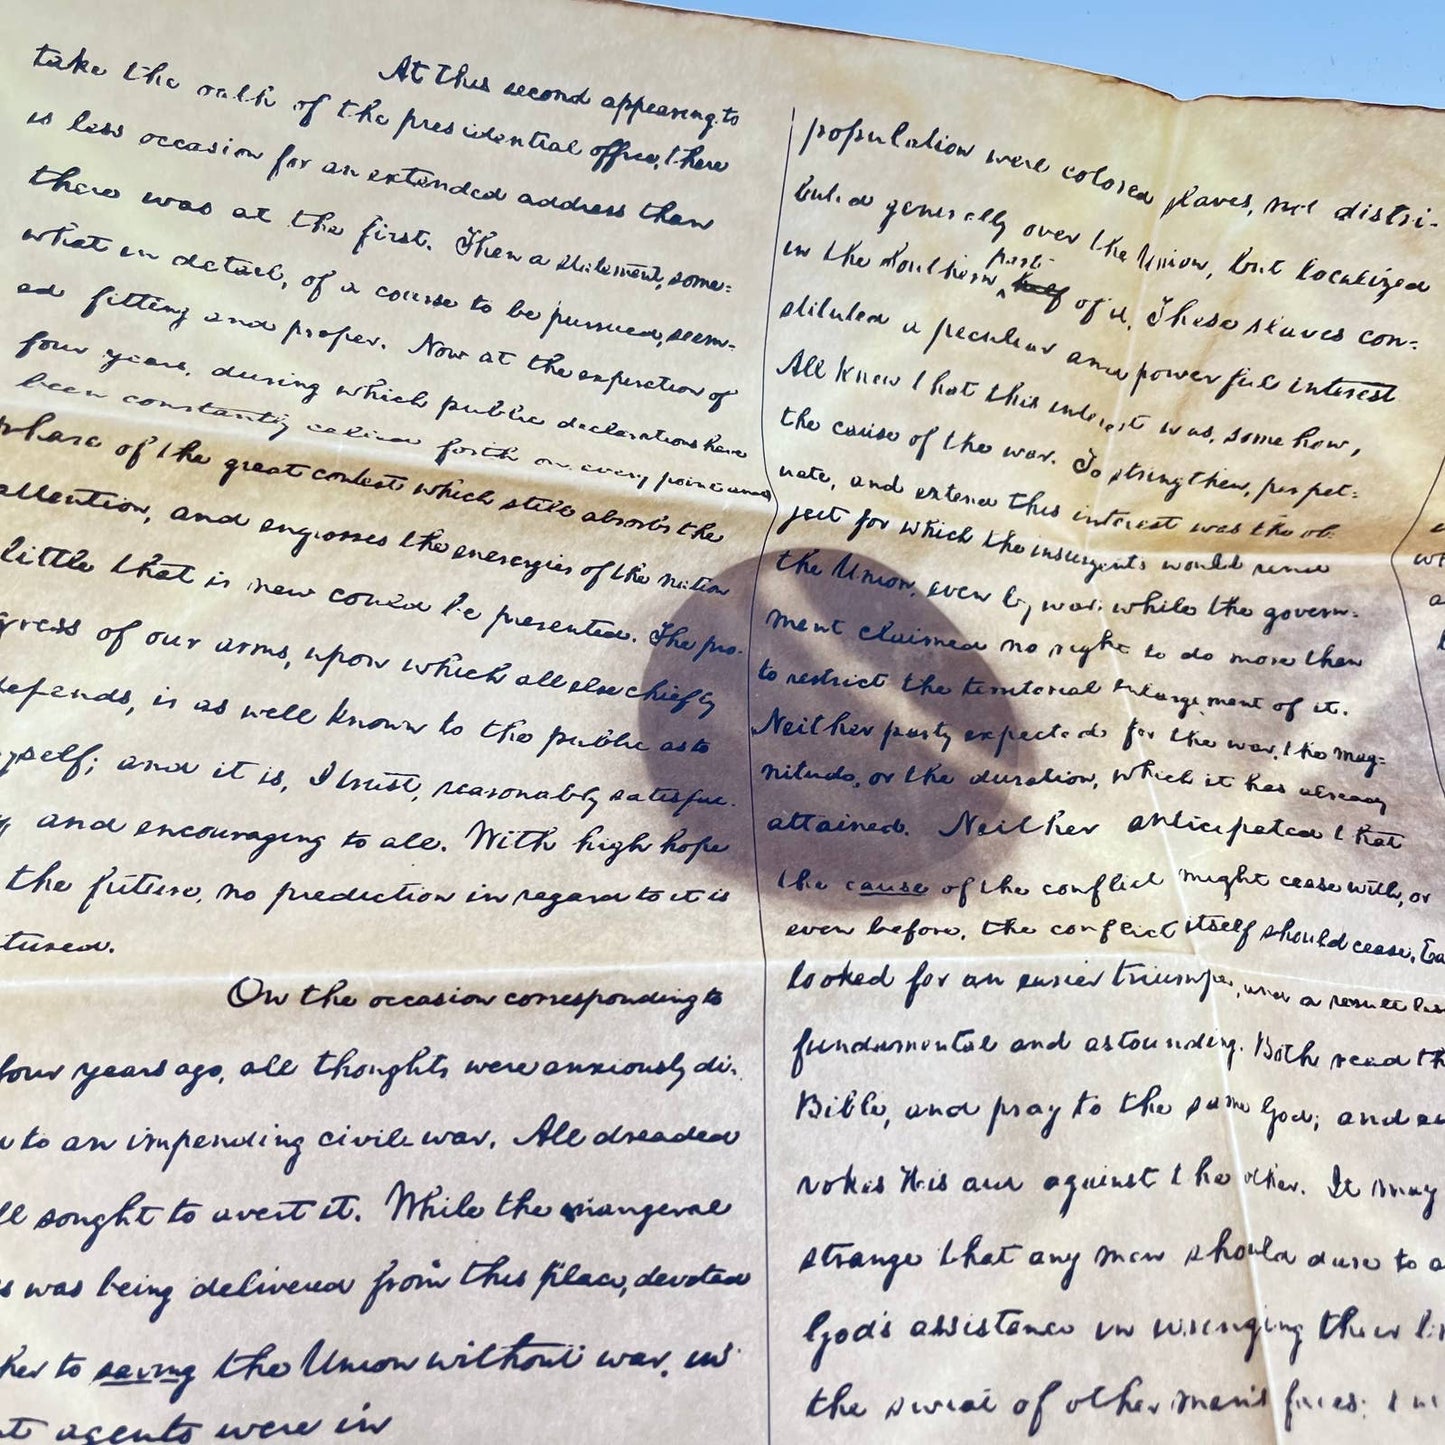 At this second appearing to
take the oath of the presidential office, there
is less occasion for an extended address than
there was at the first. Then a statement, some=
what in detail, of a course to be pursued, seem=
ed fitting and proper. Now at the expiration of
four years, during which public declarations have
been constantly called forth on every point and
phase of the great contest which still absorbs the
attention, and engrosses the energies of the nation
little that is new could be presented. The pro-
gress of our arms, upon which all else chiefly
depends, is as well known to the public as to
myself; and it is, I trust, reasonably satisfac-
and encouraging to all. With high hope
the future, no prediction in regard to it is
tured.
On the occasion corresponding to
four years ago, all thoughts were anxiously di-
to an impending civil war. All dreaded
sought to avert it. While the inaugeral
was being delivered from this place, devoted
to saving the Union without war, in
agents were in
population were colored slaves, not distri-
buted generally over the Union, but localized
in the Southern part half of it. These slaves con=
stituted a peculiar and powerful interest
All knew that this interest was, somehow,
the cause of the war. To strengthen, perpet=
uate, and extend this interest was the ob
ject for which the insurgents would rend
the Union, even by war; while the govern=
ment claimed no right to do more than
to restrict the territorial enlargement of it.
Neither party expected for the war, the mag=
nitude, or the duration, which it has already
attained. Neither anticipated that
the cause of the conflict might cease with, or
even before, the conflict itself should cease. Ea
looked for an easier triumph, and a result less
fundamental and astounding. Both read th
Bible, and pray to the same God; and ea
vokes His aid against the other. It may
strange that any men should dare to a
God's assistance in wringing their
the sweat of other men's faces;